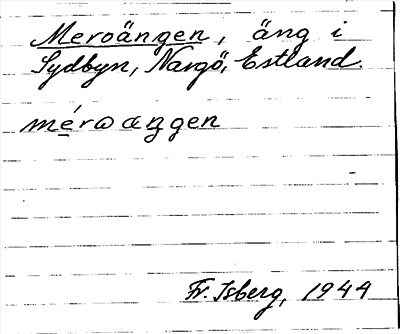 Meroängen, äng i
Sydbyn, Nargö, Estland.
mérωaŋgen
Fr. Isberg, 1944